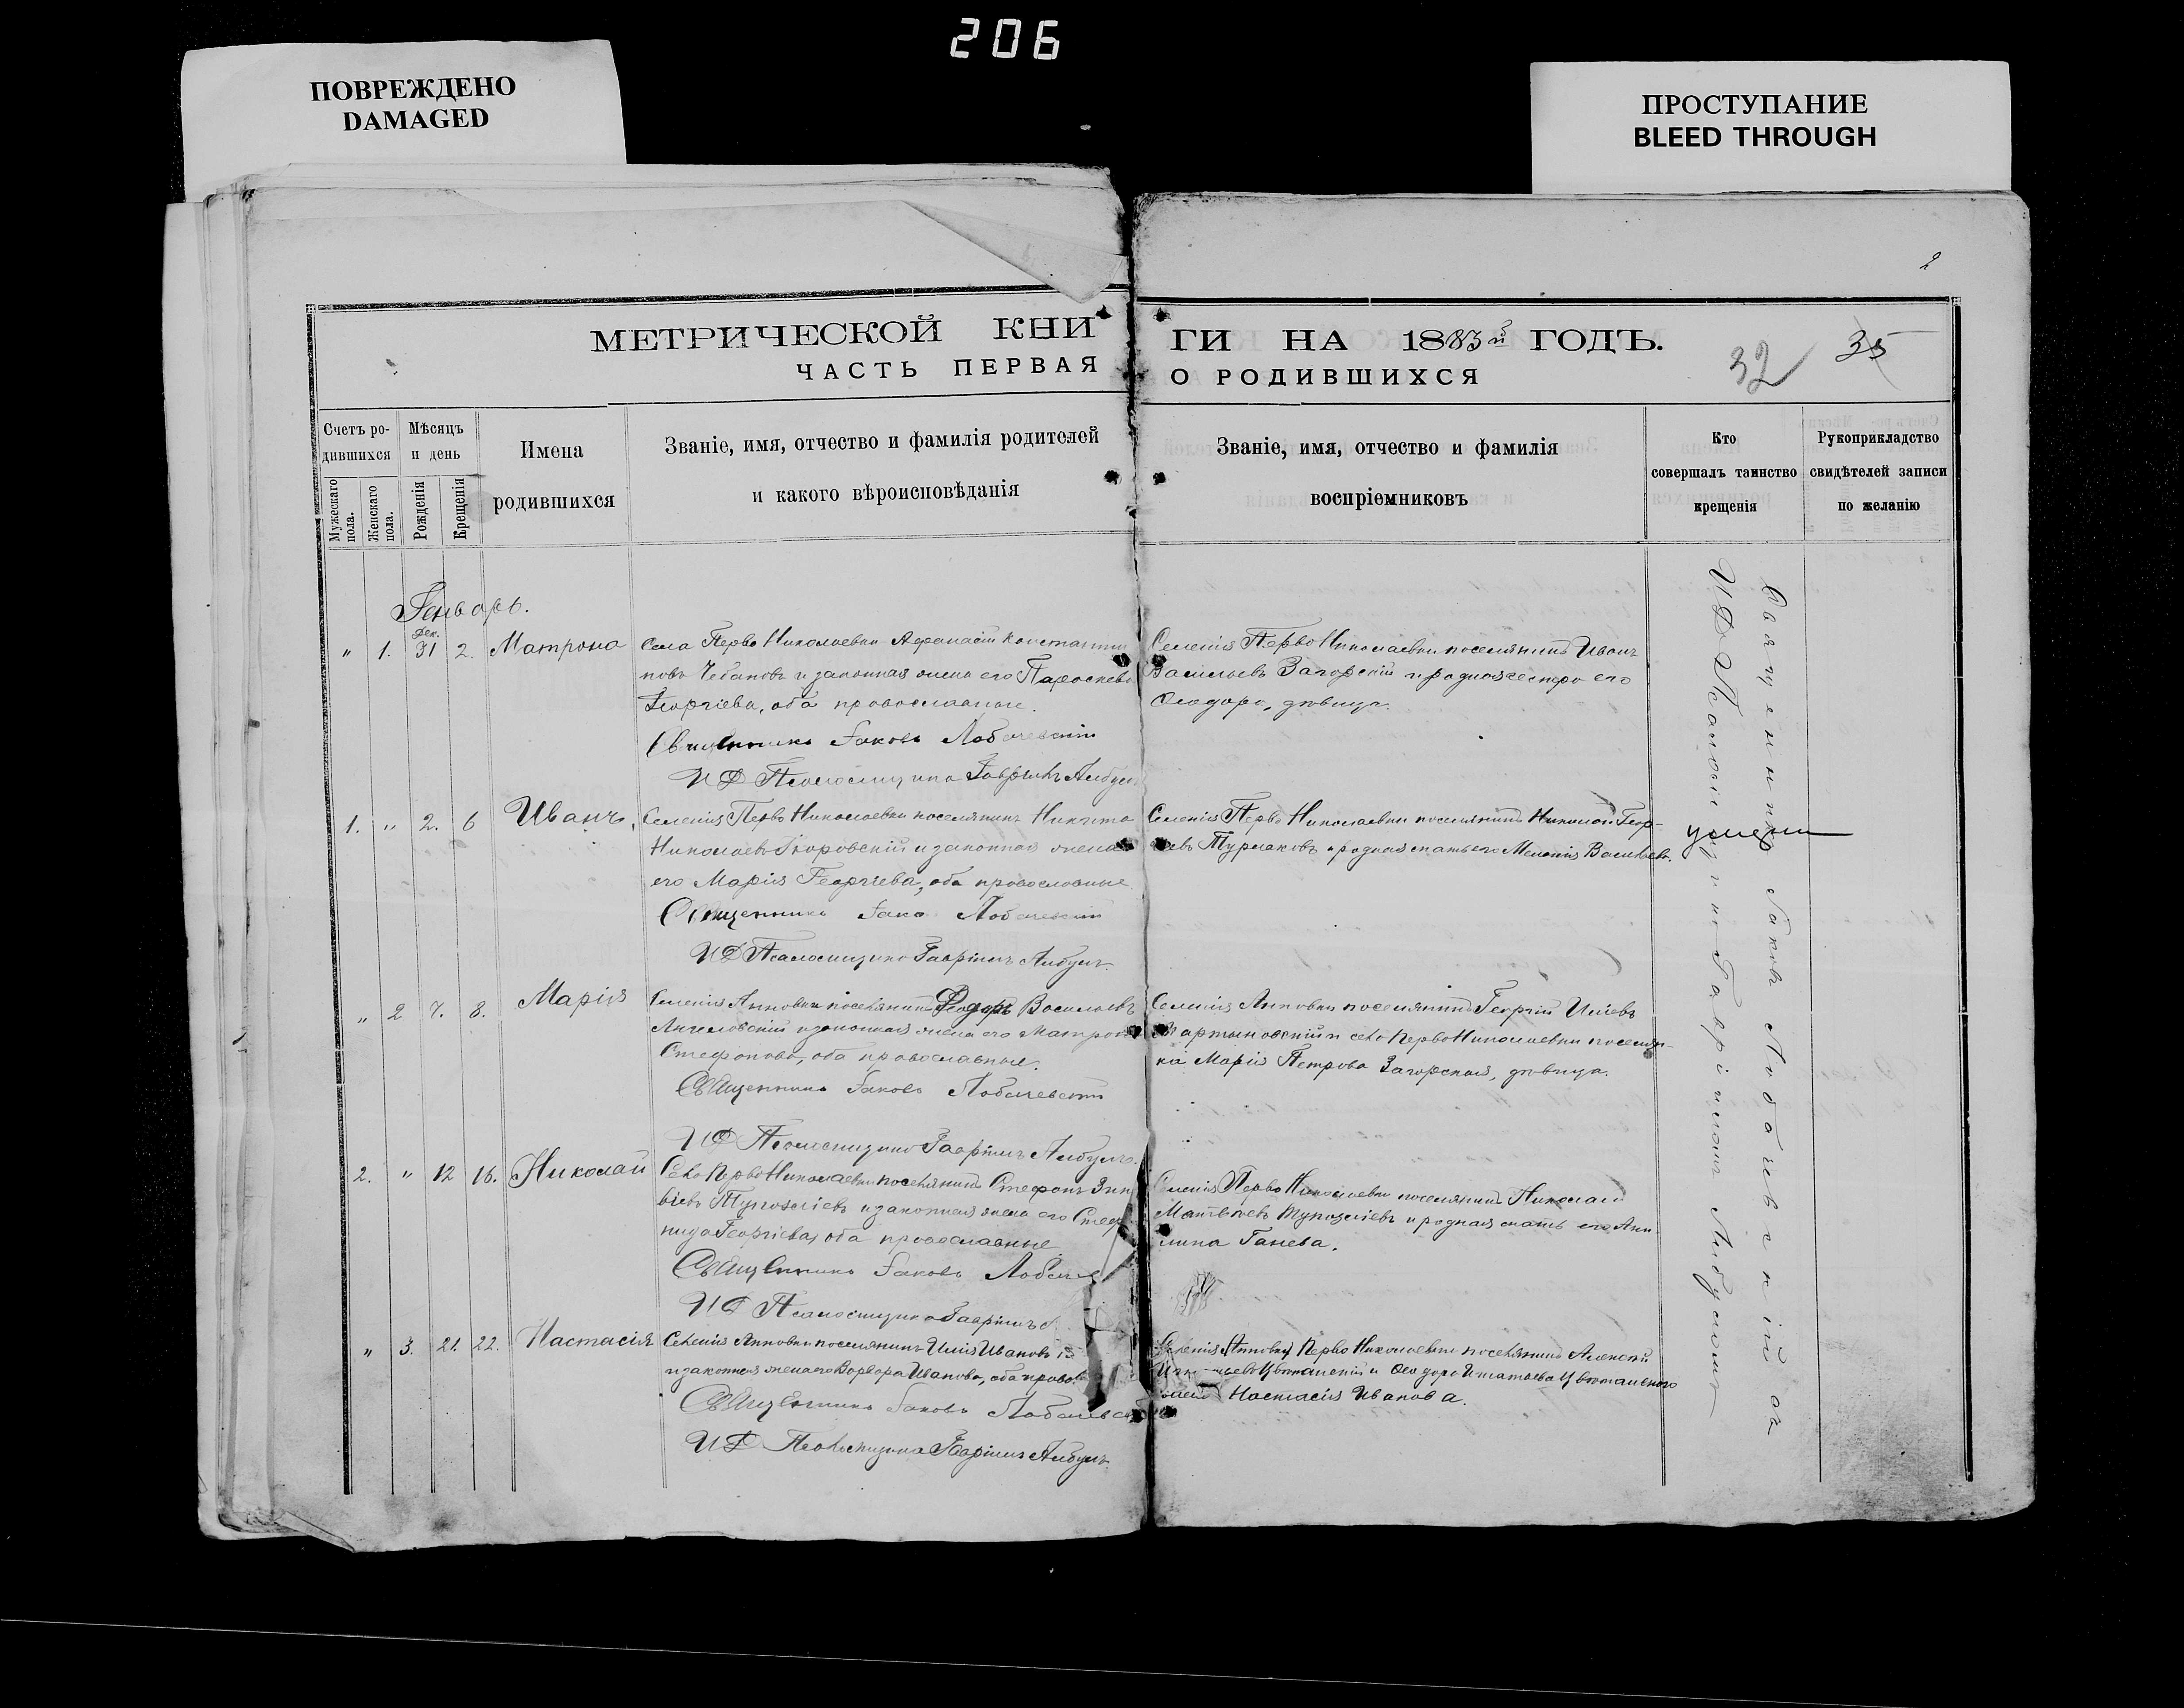 206
ПОВРЕЖДЕНО
DAMAGED
ПРОСТУПАНИЕ
BLEED THROUGH
2
МЕТРИЧЕСКОЙ КНИГИ НА 1883й ГОДЪ.
32 35
ЧАСТЬ ПЕРВАЯ О РОДИВШИХСЯ
Счетъ ро-
дившихся
Мѣсяцъ
и день
Мужескаго пола.
Женскаго пола.
Рожденія
Крещенія
Имена
родившихся
Званіе, имя, отчество и фамилія родителей
и какого вѣроисповѣданія
Званіе, имя, отчество и фамилія
воспріемниковъ
Кто
совершалъ таинство
крещенія
Рукоприкладство
свидѣтелей записи
по желанію
Генварь.
" 1. Дек. 31 2. Матрона
Села Перво Николаевки Афанасій Константи
новъ Чебановъ и законная жена его Параскева
Георгіева, оба православные.
Священникъ Іаковъ Лобачевскій
И Д Псаломщика Гавріилъ Албулъ
Селенія Перво Николаевки поселянинъ Иванъ
Васильевъ Загорскій и родная сестра его
Ѳеодора, дѣвица.
1. " 2. 6 Иванъ,
Селенія Перво Николаевки поселянинъ Никита
Николаевъ и законная жена
его Марія Георгіева, оба православные
Священникъ Іако Лобачевскій
И Д Псаломщика Гавріилъ Албулъ.
Селенія Перво Николаевки поселянинъ Николай Геор-
евъ Турлаковъ и родная мать его Меланія Васильев.
умеръ
" 2 7. 8. Марія
Селенія Анновки поселянинъ Ѳеодоръ Васильевъ
Ангеловскій и законная жена его Матрона
Стефанова, оба православные.
Священникъ Іаковъ Лобачевскій
И Д Псаломщика Гавріилъ Албулъ.
Селенія Анновки поселянинъ Георгій Иліевъ
Мартыновскій и села Перво Николаевки поселян-
ка Марія Петрова Загорская, дѣвица.
2. " 12 16. Николай
Села Перво Николаевки поселянинъ Стефанъ
и законная жена его Стеф
нида Георгіева, оба православные
Священникъ Іаковъ Лобаче
И Д Псаломщика Гавріилъ А
Селенія Перво Николаевки поселянинъ Николай
Матвѣевъ и родная мать его
Ганева.
" 3. 21. 22. Настасія
Селенія Анновки поселянинъ Илія Ивановъ
и законная жена его Варвара Иванова, оба правос
Священникъ Іаковъ Лобачевскій
И Д Псаломщика Гавріилъ Албулъ.
Селенія Анновки Перво Николаевки поселянинъ Алексей
и Ѳеодора Игнатьева
Настасія Иванова.
Священникъ Іаковъ Лобачевскій съ
И Д Псаломщика Гавріиломъ Албуломъ